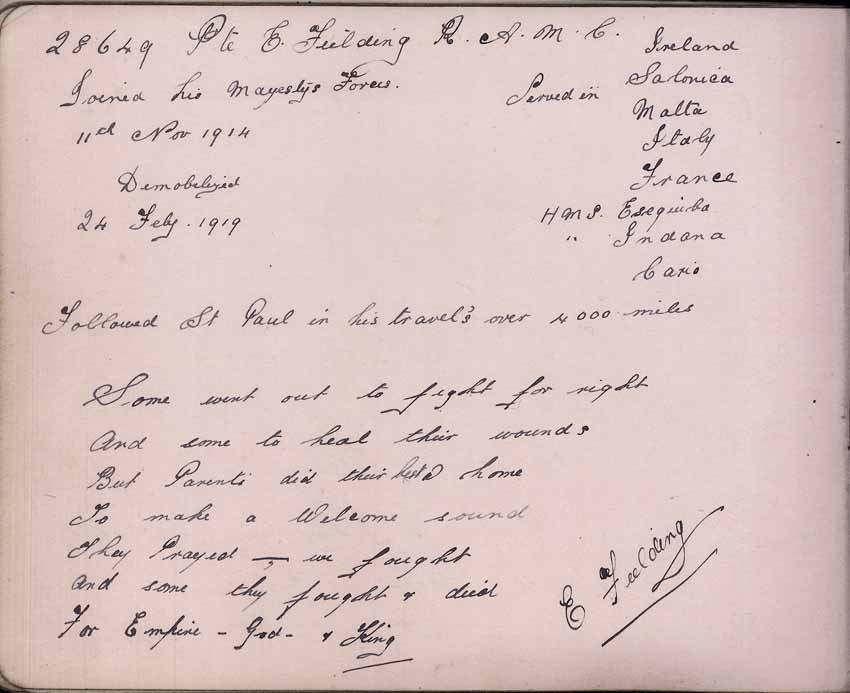 28649 Pte E. Feilding R. A. M. C.
Joined his Mayestys Forces.
11ed Nov 1914
Demobelized
24 Feby. 1919
Served in Ireland
Salonica
Malta
Italy
France
HMS. Esequiba
" Indana
Cario
Followed St Paul in his travel's over 4000 miles
Some went out to fight for right
And some to heal their wounds
But Parents did their best @ home
To make a Welcome sound
They Prayed — , we fought
And some they fought & died
For Empire - God - & King
E Feilding